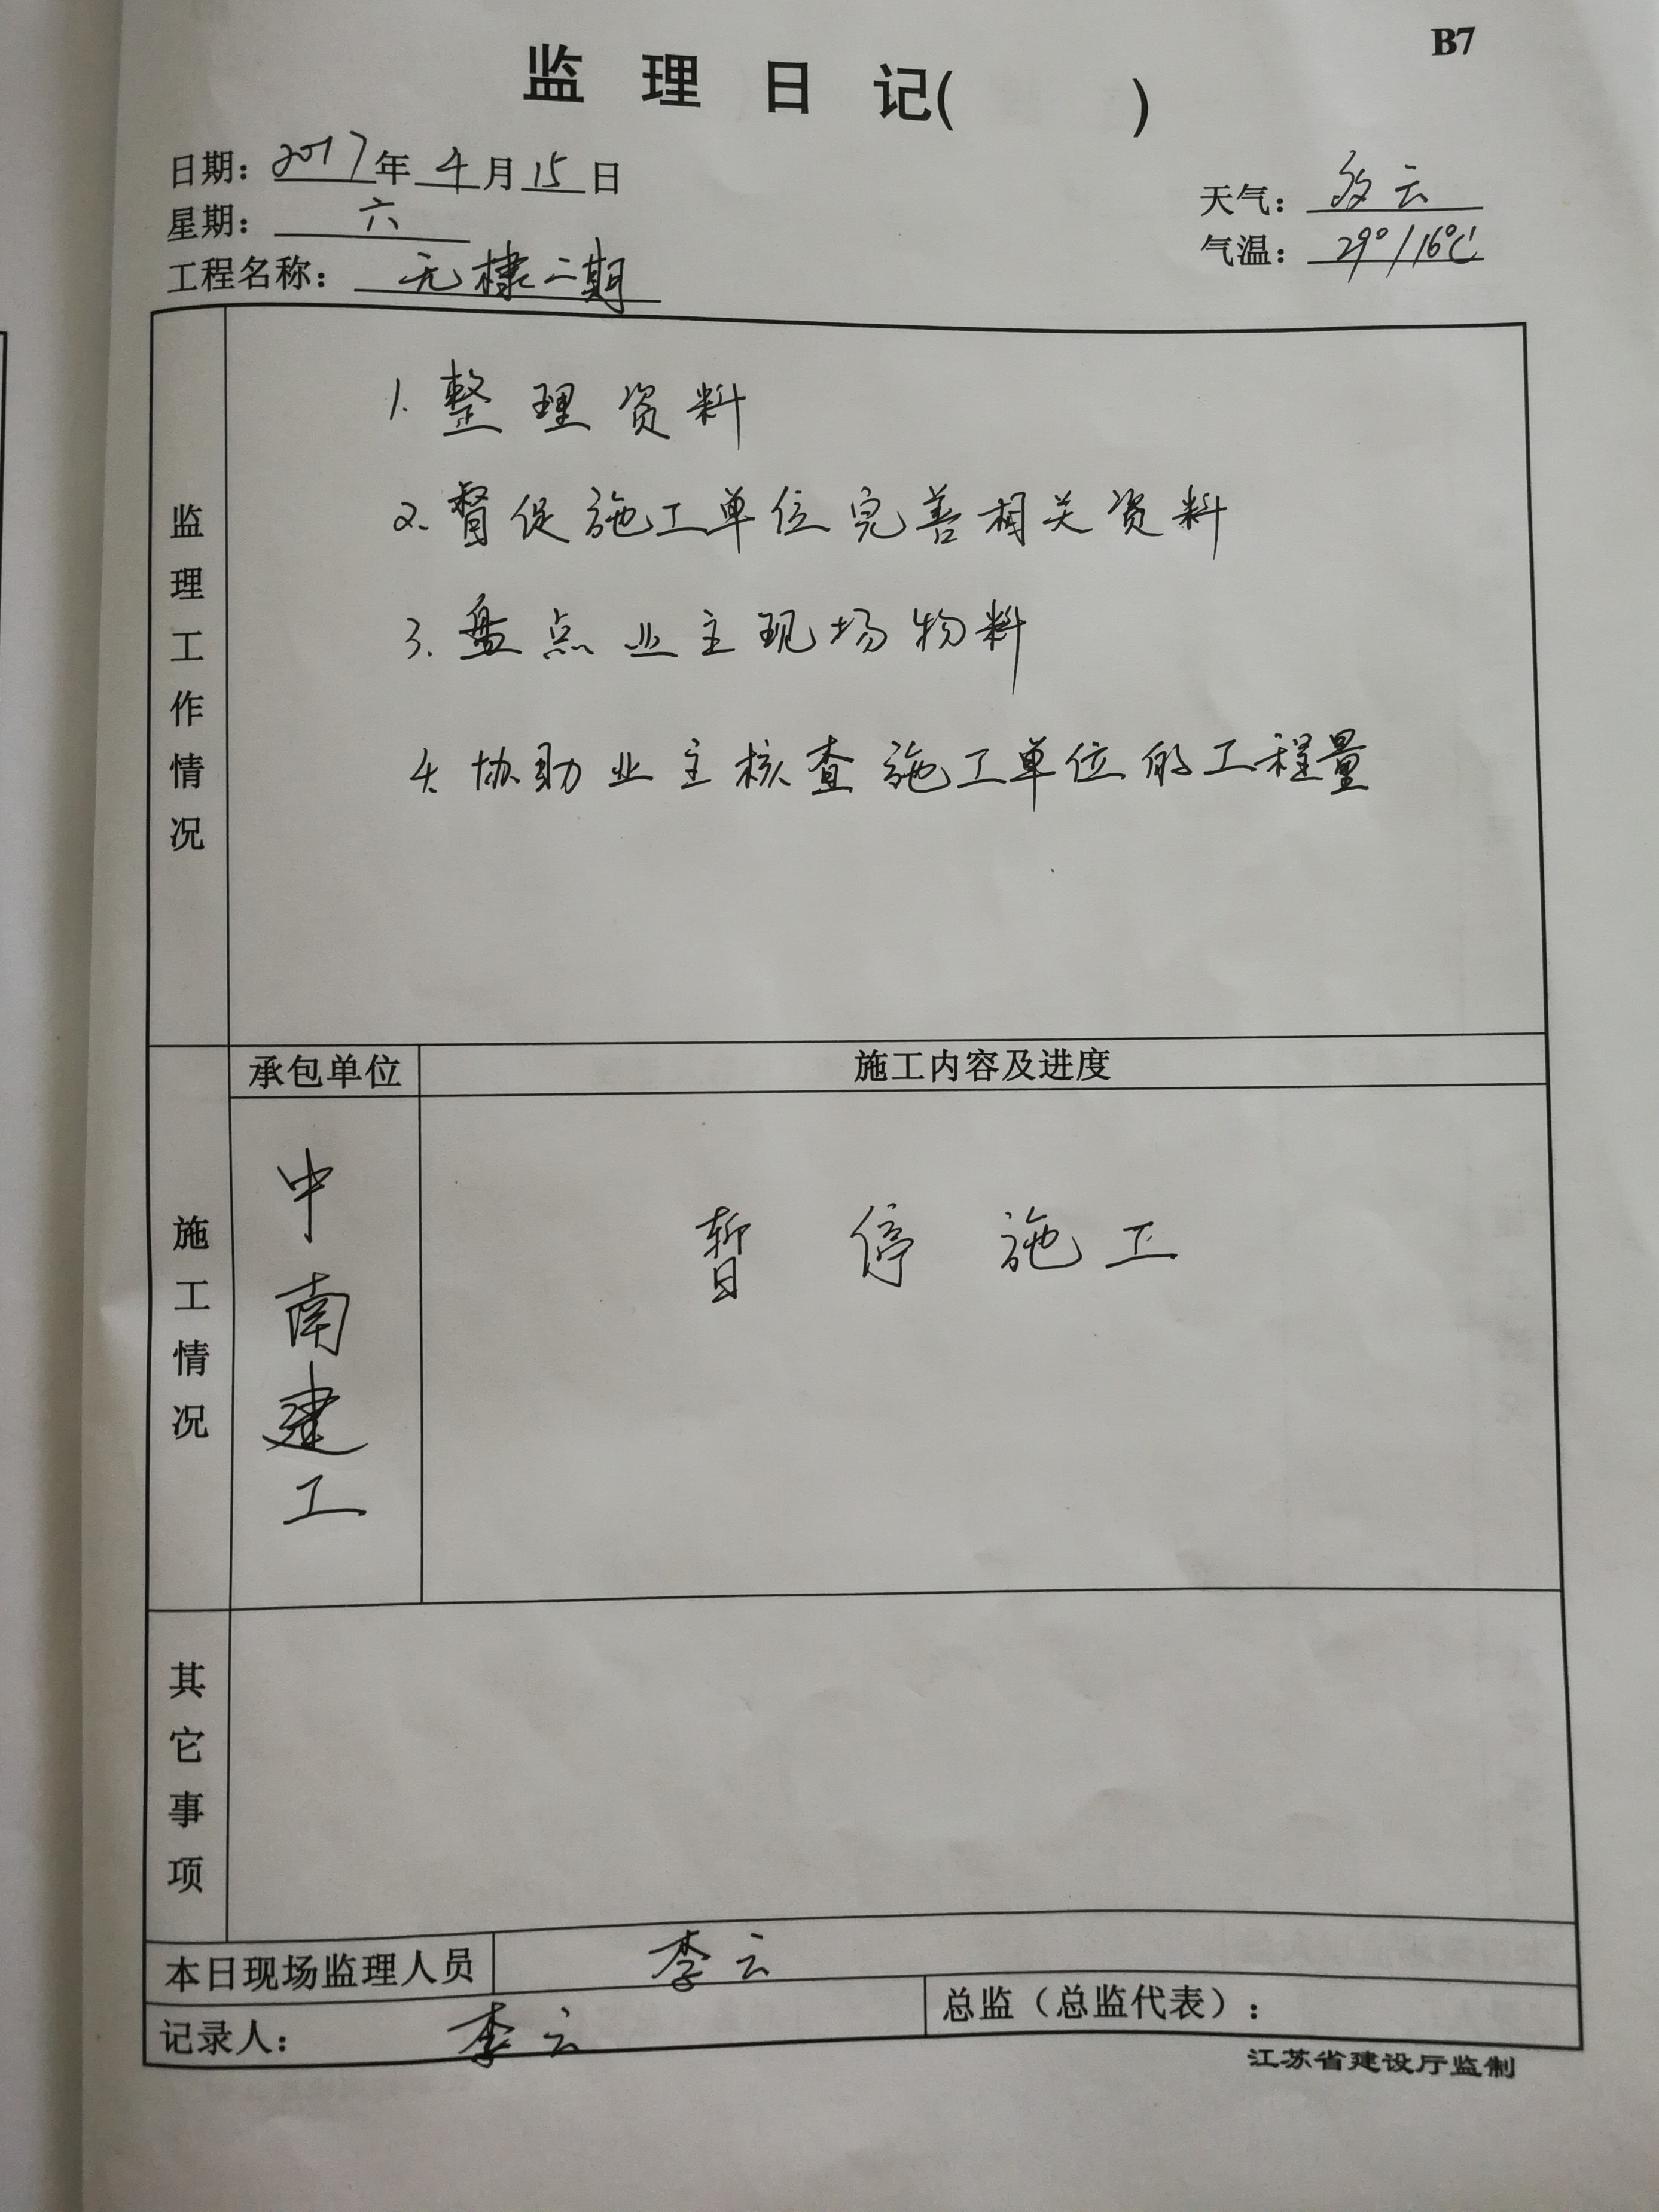 B7
监理日记(    )
日期：2017年4月15日
天气：多云
星期：六
气温：29°/16℃
工程名称：无棣二期
监理工作情况
1. 整理资料
2. 督促施工单位完善相关资料
3. 盘点业主现场物料
4. 协助业主核查施工单位的工程量
施工情况
承包单位
施工内容及进度
中南建工
暂停施工
其它事项
本日现场监理人员 李云
记录人： 李云
总监（总监代表）：
江苏省建设厅监制